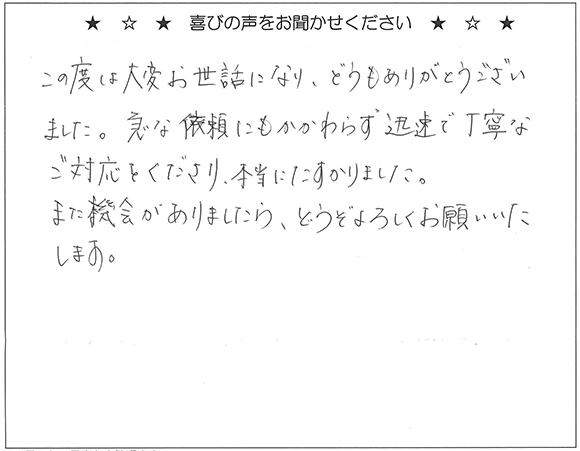 ★ ☆ ★ 喜びの声をお聞かせください ★ ☆ ★
この度は大変お世話になり、どうもありがとうござい
ました。急な依頼にもかかわらず迅速で丁寧な
ご対応をくださり、本当にたすかりました。
また機会がありましたら、どうぞよろしくお願いいた
します。